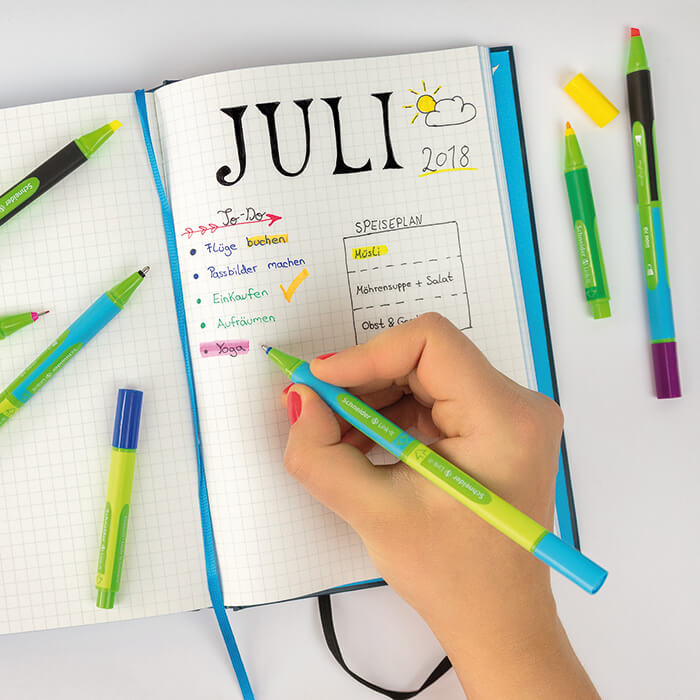 JULI
2018
To-Do
Flüge buchen
Passbilder machen
Einkaufen
Aufräumen
Yoga
SPEISEPLAN
Müsli
Möhrensuppe + Salat
Obst &
Schneider Link-It
Schneider
Schneider
Schneider